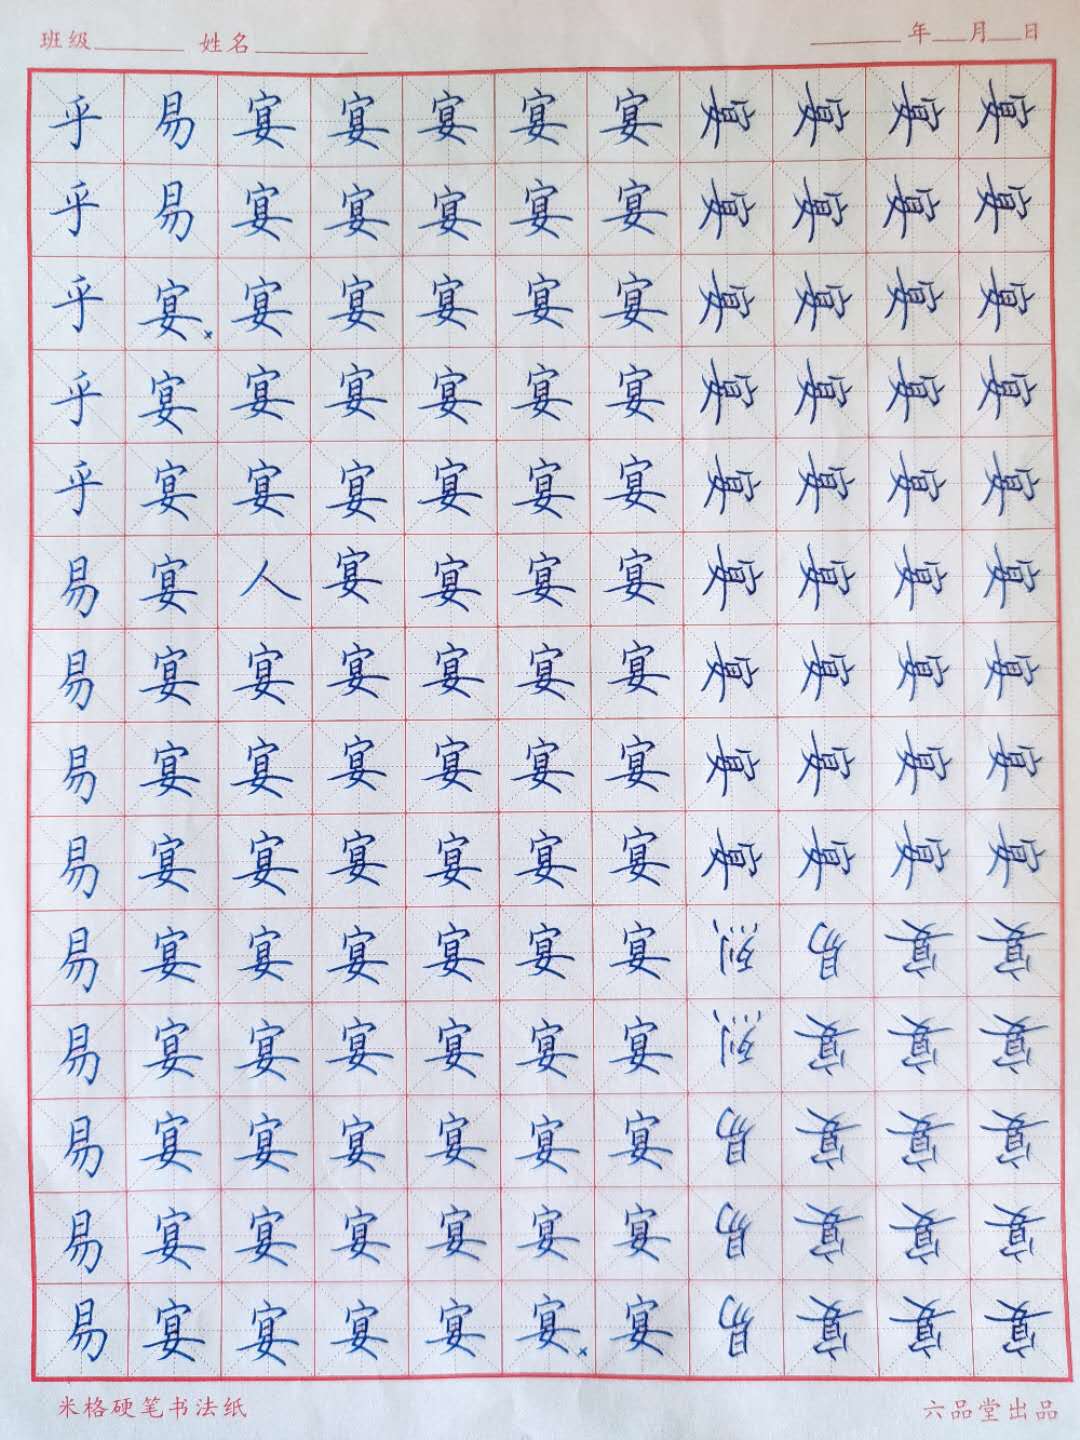 班级 姓名 年 月 日
乎 易 宴 宴 宴 宴 宴 宴 宴 宴 宴
乎 易 宴 宴 宴 宴 宴 宴 宴 宴 宴
乎 宴 宴 宴 宴 宴 宴 宴 宴 宴 宴
乎 宴 宴 宴 宴 宴 宴 宴 宴 宴 宴
乎 宴 宴 宴 宴 宴 宴 宴 宴 宴 宴
易 宴 人 宴 宴 宴 宴 宴 宴 宴 宴
易 宴 宴 宴 宴 宴 宴 宴 宴 宴 宴
易 宴 宴 宴 宴 宴 宴 宴 宴 宴 宴
易 宴 宴 宴 宴 宴 宴 宴 宴 宴 宴
易 宴 宴 宴 宴 宴 宴 烈 易 宴 宴
易 宴 宴 宴 宴 宴 宴 烈 宴 宴 宴
易 宴 宴 宴 宴 宴 宴 易 宴 宴 宴
易 宴 宴 宴 宴 宴 宴 易 宴 宴 宴
易 宴 宴 宴 宴 宴 宴 易 宴 宴 宴
米格硬笔书法纸 六品堂出品